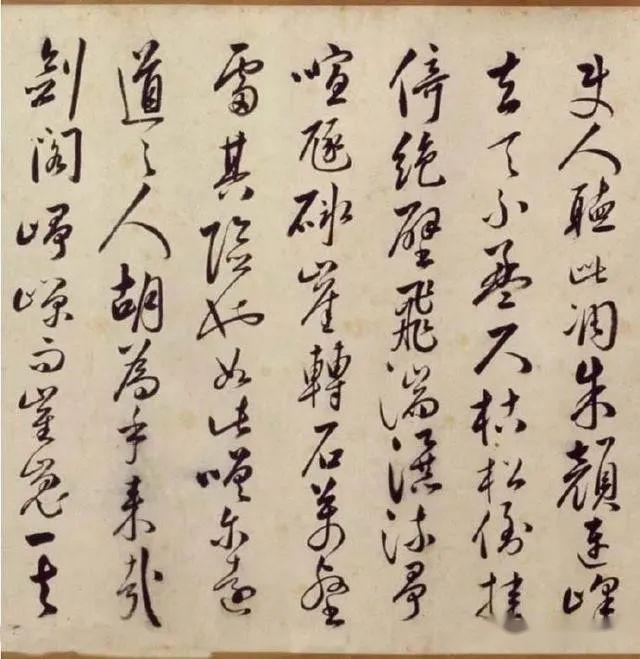 使人聽此凋朱顏連峰
去天不盈尺枯松倒挂
倚絕壁飛湍瀑流爭
喧豗砯崖轉石萬壑
雷其險也如此嗟爾遠
道之人胡為乎來哉
劍閣崢嶸而崔嵬一夫